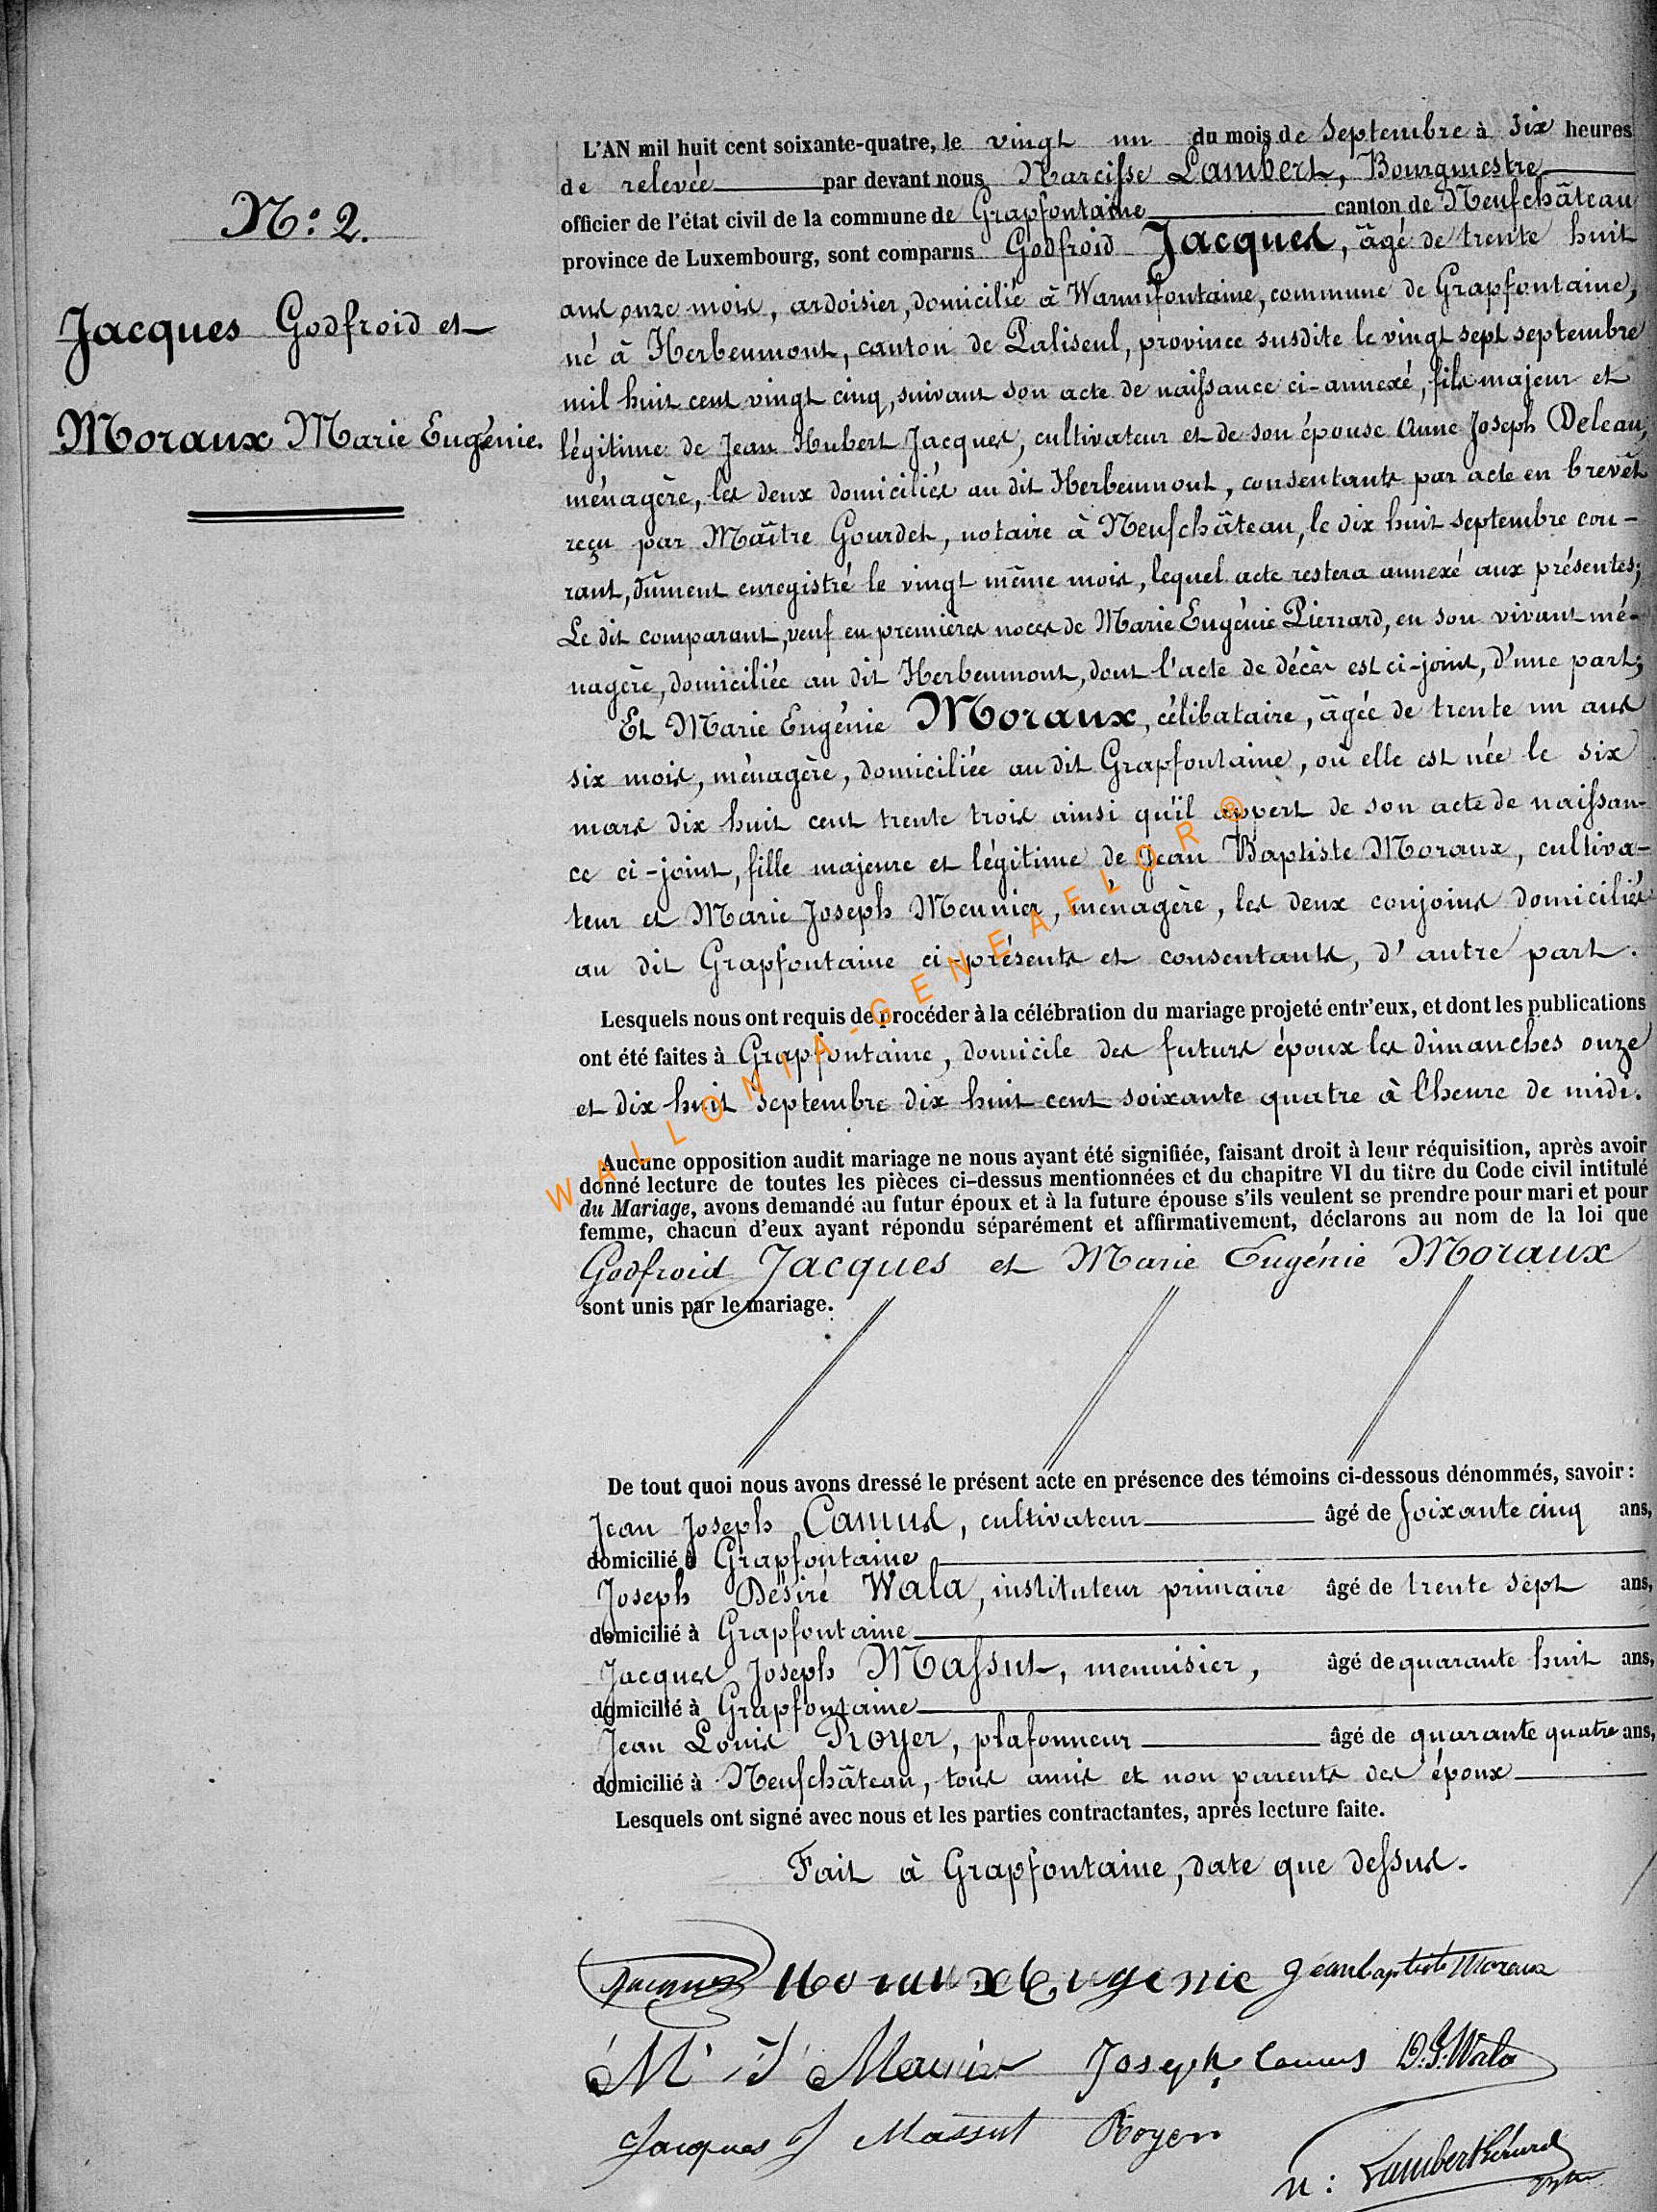 N.º 2.
Jacques Godfroid et
Moraux Marie Eugénie.
L'AN mil huit cent soixante-quatre, le vingt un du mois de Septembre à six heures
de relevée par devant nous Narcisse Lambert, Bourgmestre
officier de l'état civil de la commune de Grapfontaine canton de Neufchâteau
province de Luxembourg, sont comparus Godfroid Jacques, âgé de trente huit
ans onze mois, ardoisier, domicilié à Warmifontaine, commune de Grapfontaine,
né à Herbeumont, canton de Paliseul, province susdite le vingt sept septembre
mil huit cent vingt cinq, suivant son acte de naissance ci-annexé, fils majeur et
légitime de Jean Hubert Jacques, cultivateur et de son épouse Anne Joseph Deleau,
ménagère, les deux domiciliés au dit Herbeumont, consentants par acte en brevêt
reçu par Maître Gourdet, notaire à Neufchâteau, le dix huit septembre cou-
rant, dûment enregistré le vingt même mois, lequel acte restera annexé aux présentes;
Le dit comparant, veuf en premières noces de Marie Eugénie Pierrard, en son vivant mé-
nagère, domiciliée au dit Herbeumont, dont l'acte de décès est ci-joint, d'une part;
Et Marie Eugénie Moraux, célibataire, âgée de trente un ans
six mois, ménagère, domiciliée au dit Grapfontaine, où elle est née le six
mars dix huit cent trente trois ainsi qu'il appert de son acte de naissan-
ce ci-joint, fille majeure et légitime de Jean Baptiste Moraux, cultiva-
teur et Marie Joseph Meunier, ménagère, les deux conjoins domiciliés
au dit Grapfontaine ci-présents et consentants, d'autre part.
Lesquels nous ont requis de procéder à la célébration du mariage projeté entr'eux, et dont les publications
ont été faites à Grapfontaine, domicile des futurs époux les dimanches onze
et dix huit septembre dix huit cent soixante quatre à l'heure de midi.
Aucune opposition audit mariage ne nous ayant été signifiée, faisant droit à leur réquisition, après avoir
donné lecture de toutes les pièces ci-dessus mentionnées et du chapitre VI du titre du Code civil intitulé
du Mariage, avons demandé au futur époux et à la future épouse s'ils veulent se prendre pour mari et pour
femme, chacun d'eux ayant répondu séparément et affirmativement, déclarons au nom de la loi que
Godfroid Jacques et Marie Eugénie Moraux
sont unis par le mariage.
De tout quoi nous avons dressé le présent acte en présence des témoins ci-dessous dénommés, savoir :
Jean Joseph Camus, cultivateur âgé de soixante cinq ans,
domicilié à Grapfontaine
Joseph Désiré Wala, instituteur primaire âgé de trente sept ans,
domicilié à Grapfontaine
Jacques Joseph Massut, menuisier, âgé de quarante huit ans,
domicilié à Grapfontaine
Jean Louis Royer, plafonneur âgé de quarante quatre ans,
domicilié à Neufchâteau, tous amis et non parents des époux
Lesquels ont signé avec nous et les parties contractantes, après lecture faite.
Fait à Grapfontaine, date que dessus.
Jacques Moraux Eugenie Jean baptiste Moraux
M J Meunier Joseph Camus D. J. Wala
Jacques J Massut Royer
N : Lambert Gérard
WALLONIA-GENEAFLOR®